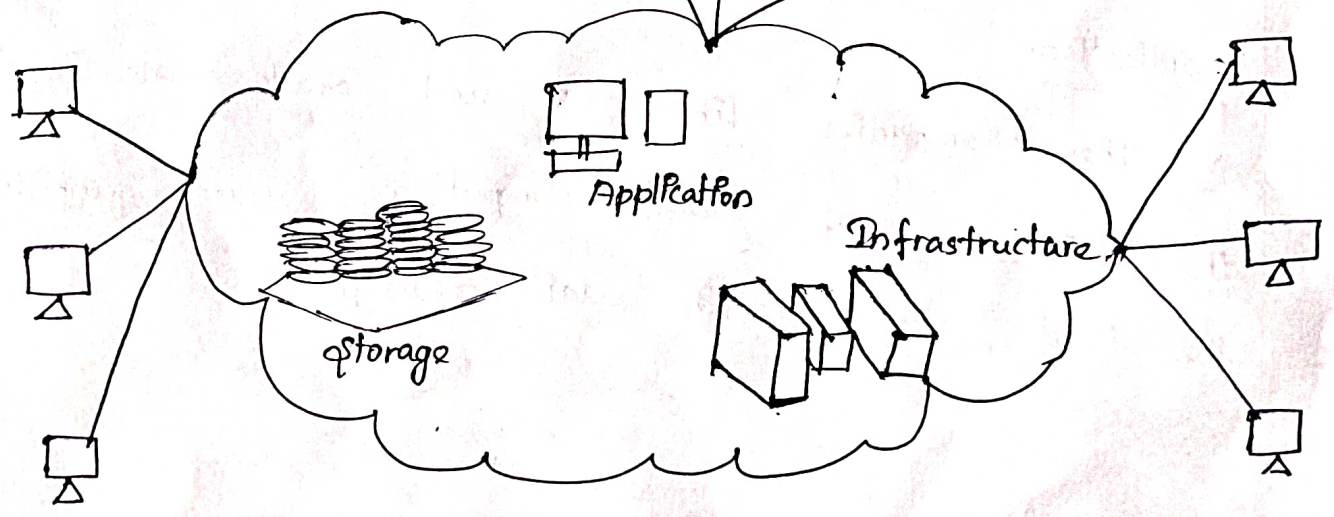 Application
Infrastructure
Storage